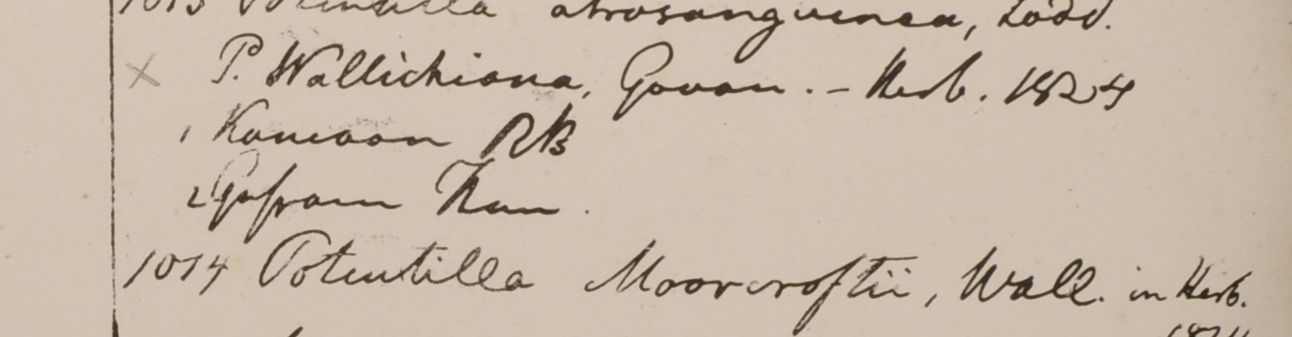 1013 Potentilla atrosanguinea, Lodd.
× P. Wallichiana, Govan. – Herb. 1824
1 Kamaon RB
2 Gossam Than
1014 Potentilla Moorcroftii, Wall. in Herb.
1824